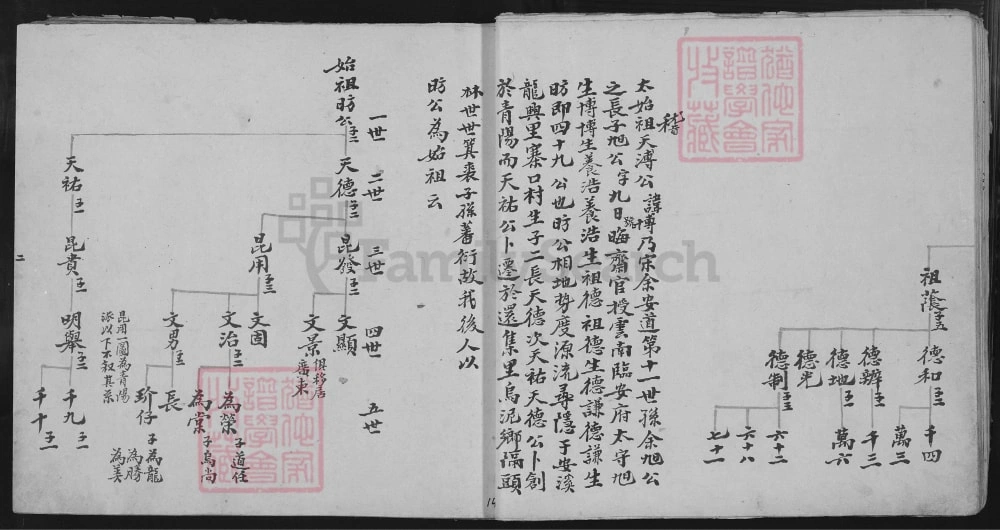 祖蔭
德和
德辨
德地
德光
德制
千四
萬三
千三
萬六
六十二
六十八
七十一
稽
太始祖天溥公諱博乃宋余安道第十一世孫余旭公
之長子旭公字九日號晦齋官授雲南臨安府太守旭
生博博生養浩養浩生祖德祖德生德謙德謙生
昉即四十九公也昉公相地勢度源流尋隱于安溪
龍興里寨口村生子二長天德次天祐天德公卜創
於青陽而天祐公卜遷於還集里烏泥鄉隔頭
林世世箕裘子孫蕃衍故我後人以
昉公為始祖云
一世 二世 三世 四世 五世
始祖昉公
天德
昆發
文顯
文景
俱移居
廣東
昆用
文固
文治
為榮 子道任
為棠 子烏尚
文男
長
玠仔 子為龍
為勝
為美
昆用一圖為青陽
派以下不叙其系
天祐
昆貴
明舉
千九
千十
二
14
FamilySearch